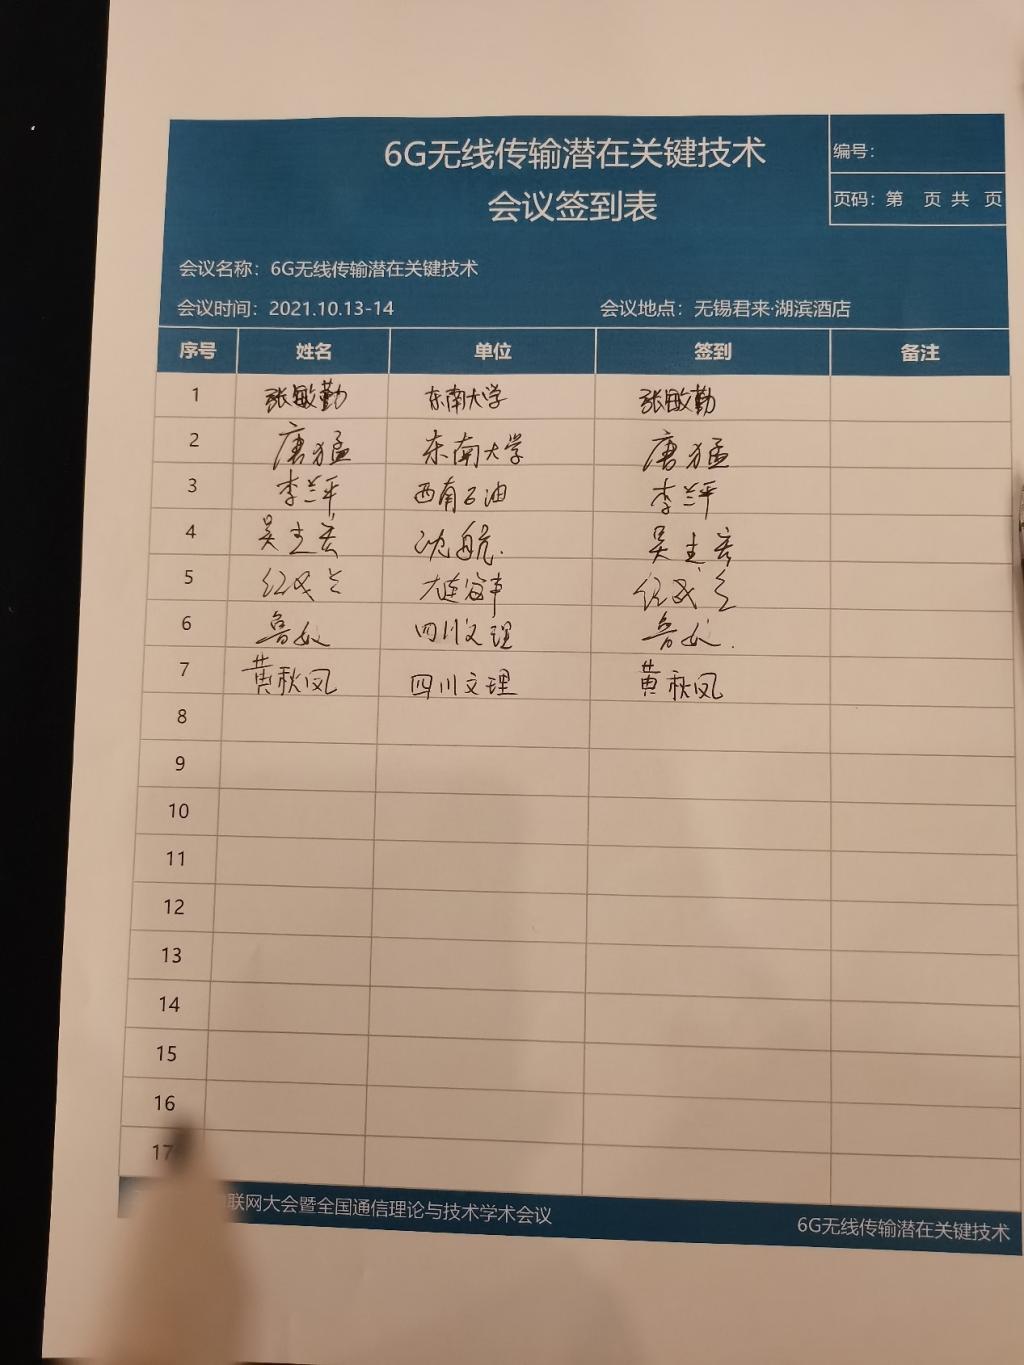 6G无线传输潜在关键技术
会议签到表
编号：
页码：第 页 共 页
会议名称：6G无线传输潜在关键技术
会议时间：2021.10.13-14 会议地点：无锡君来·湖滨酒店
序号 姓名 单位 签到 备注
1 张敏勤 东南大学 张敏勤
2 唐猛 东南大学 唐猛
3 李兰平 西南石油 李兰平
4 吴 沈航. 吴
5 大连
6 鲁 四川文理 鲁
7 黄秋凤 四川文理 黄秋凤
8
9
10
11
12
13
14
15
16
17
联网大会暨全国通信理论与技术学术会议 6G无线传输潜在关键技术